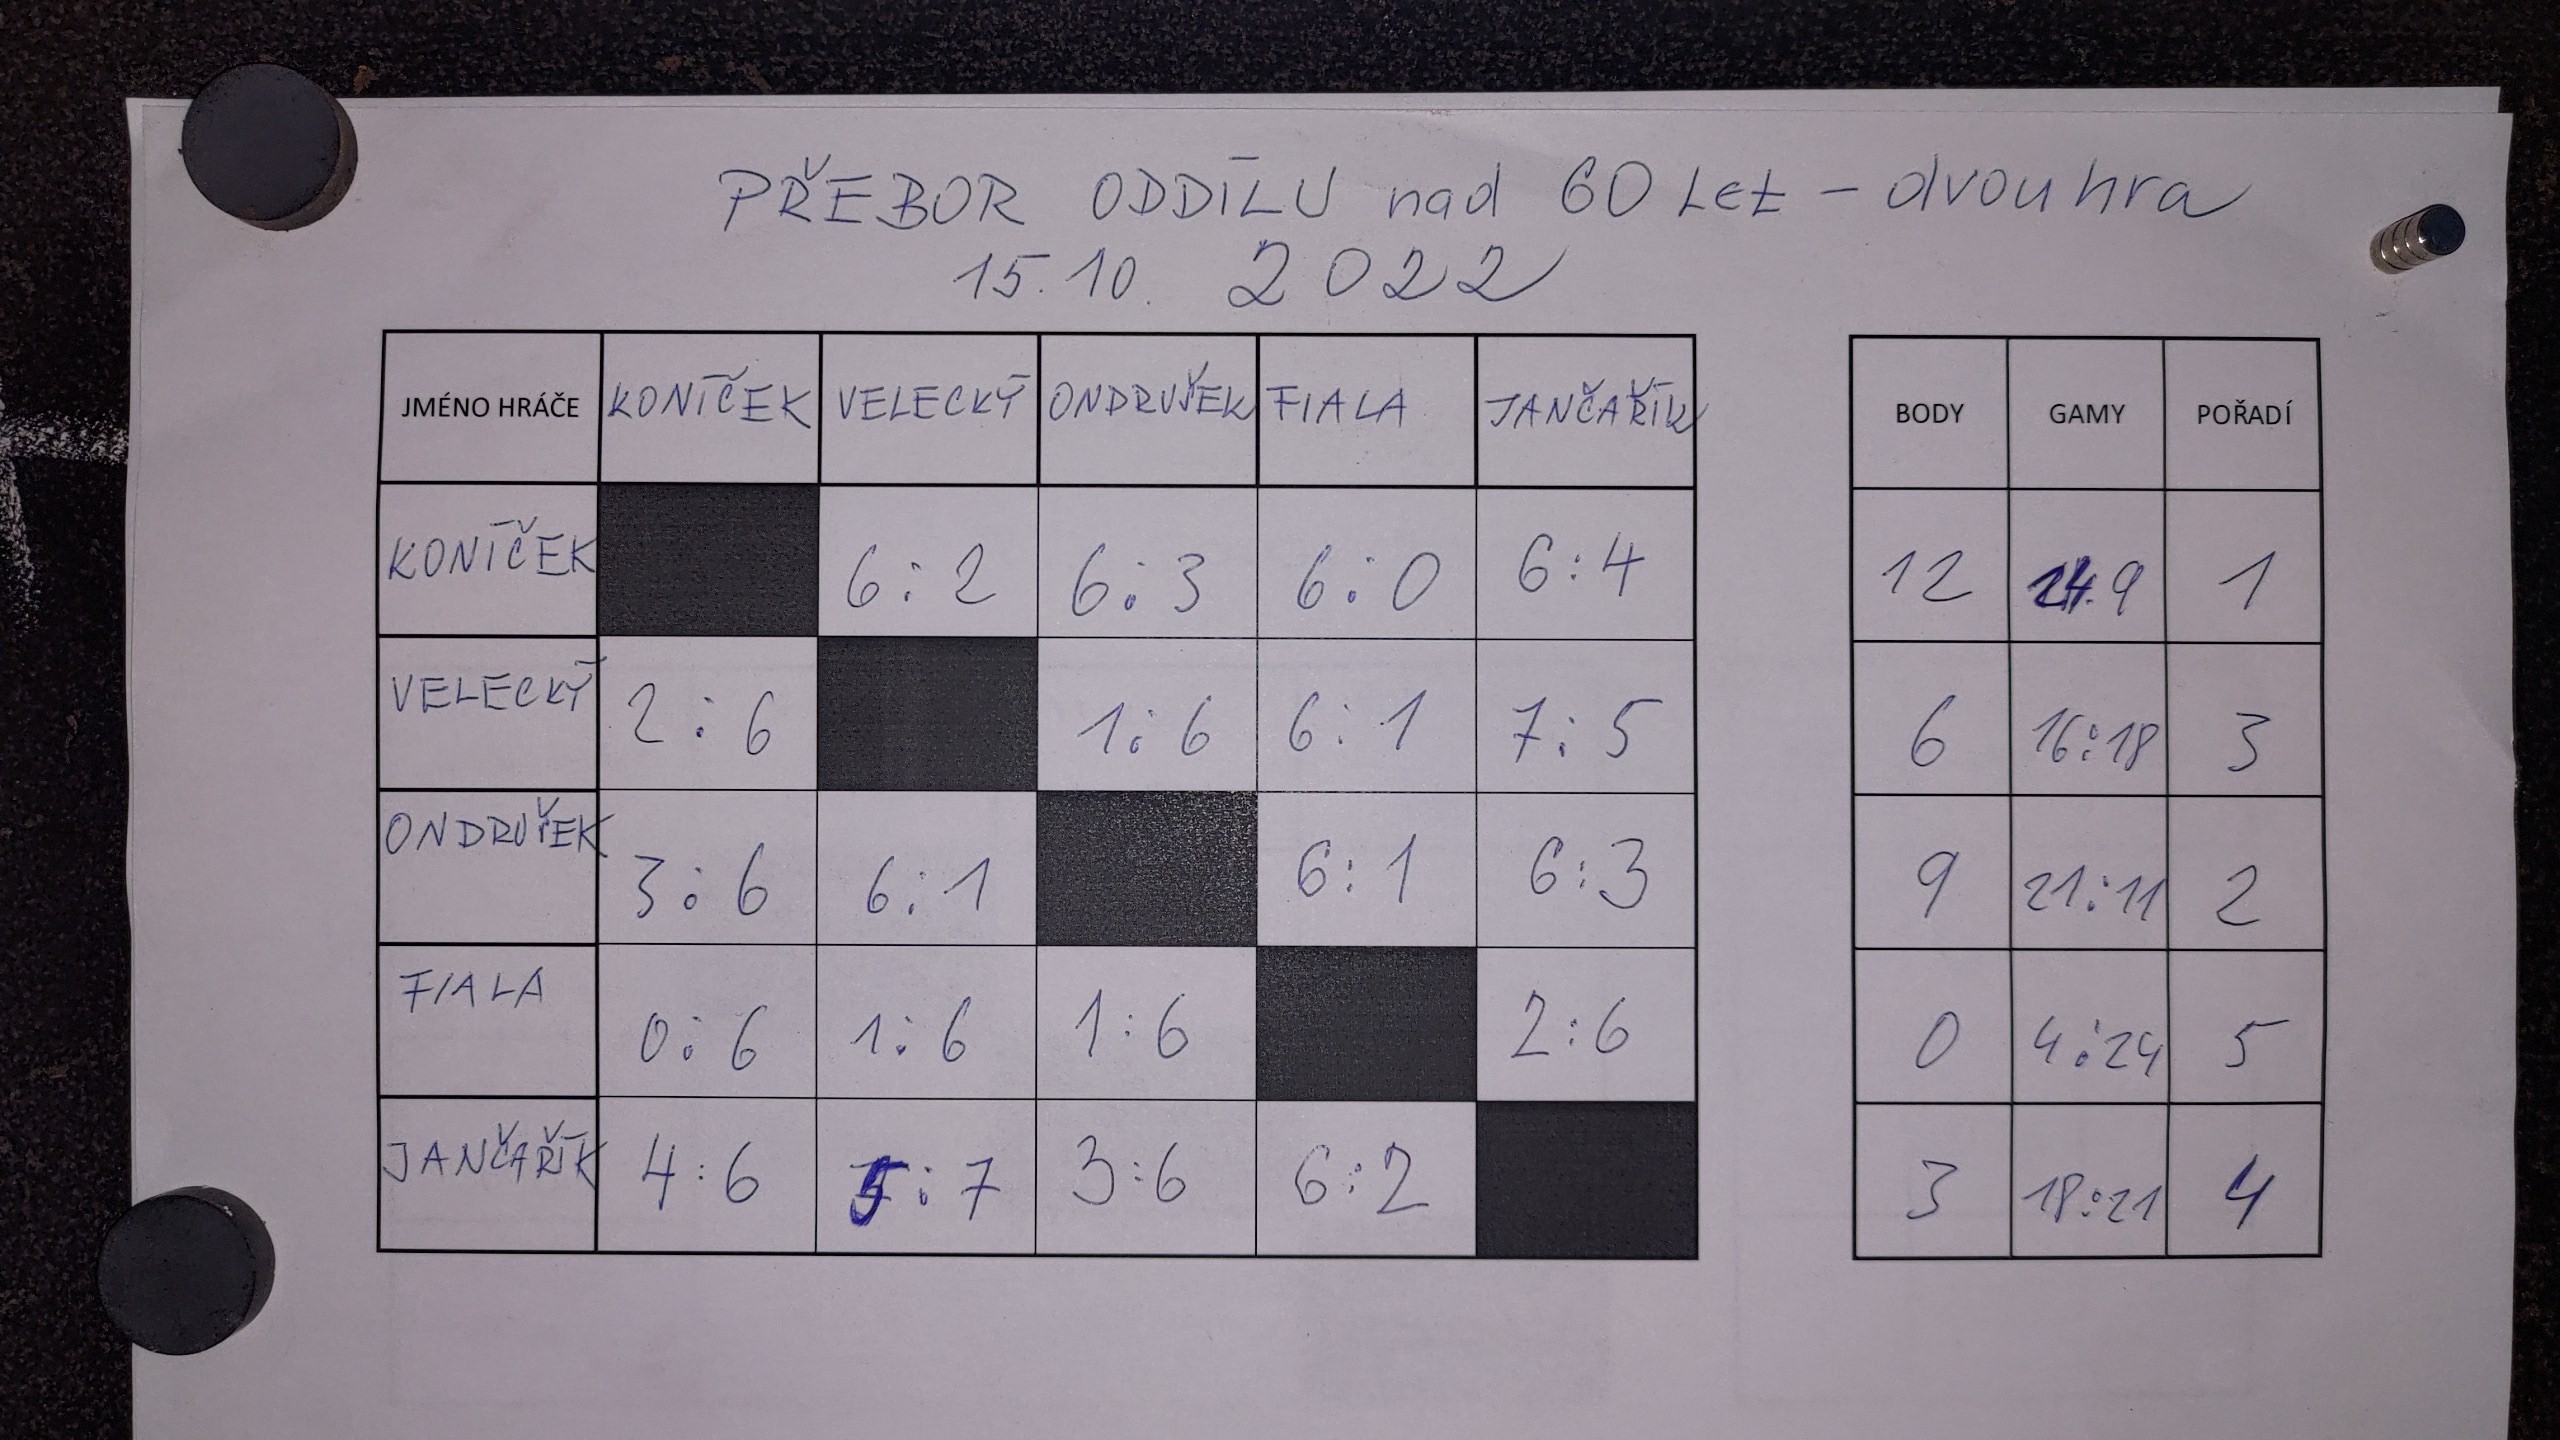 PŘEBOR ODDÍLU nad 60 let - dvouhra
15.10. 2022
JMÉNO HRÁČE KONÍČEK VELECKÝ ONDRUŠEK FIALA JANČAŘÍK BODY GAMY POŘADÍ
KONÍČEK 6:2 6:3 6:0 6:4 12 24:9 1
VELECKÝ 2:6 1:6 6:1 7:5 6 16:18 3
ONDRUŠEK 3:6 6:1 6:1 6:3 9 21:11 2
FIALA 0:6 1:6 1:6 2:6 0 4:24 5
JANČAŘÍK 4:6 5:7 3:6 6:2 3 18:21 4